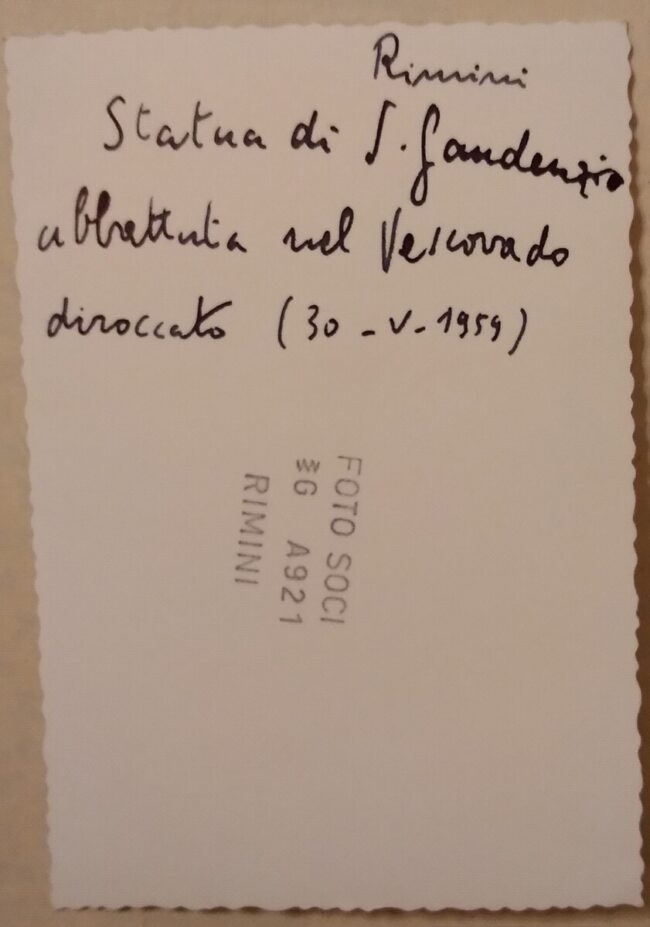 Rimini
Statua di S. Gaudenzio
abbattuta nel Vescovado
diroccato (30 - V - 1959)
FOTO SOCI
G A921
RIMINI